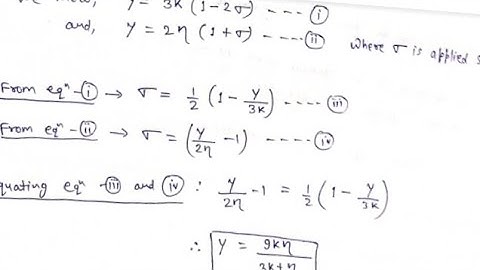 Y = 3K (1 - 2σ) ---- (i)
and, Y = 2η (1 + σ) ---- (ii) where σ is applied
From eqⁿ-(i) → σ = 1/2 (1 - Y/3K) ---- (iii)
From eqⁿ-(ii) → σ = (Y/2η - 1) ---- (iv)
equating eqⁿ (iii) and (iv) ∴ Y/2η - 1 = 1/2 (1 - Y/3K)
∴ Y = 9Kη / 3K+η